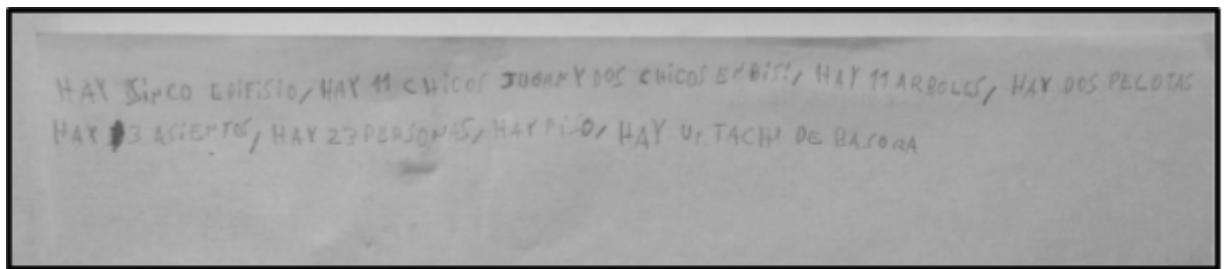 HAY SINCO EDIFISIO, HAY 11 CHICOS JUGAN Y DOS CHICOS EN BISI, HAY 11 ARBOLES, HAY DOS PELOTAS
HAY 3 ASIENTOS, HAY 23 PERSONAS, HAY PISO, HAY UN TACHO DE BASORA